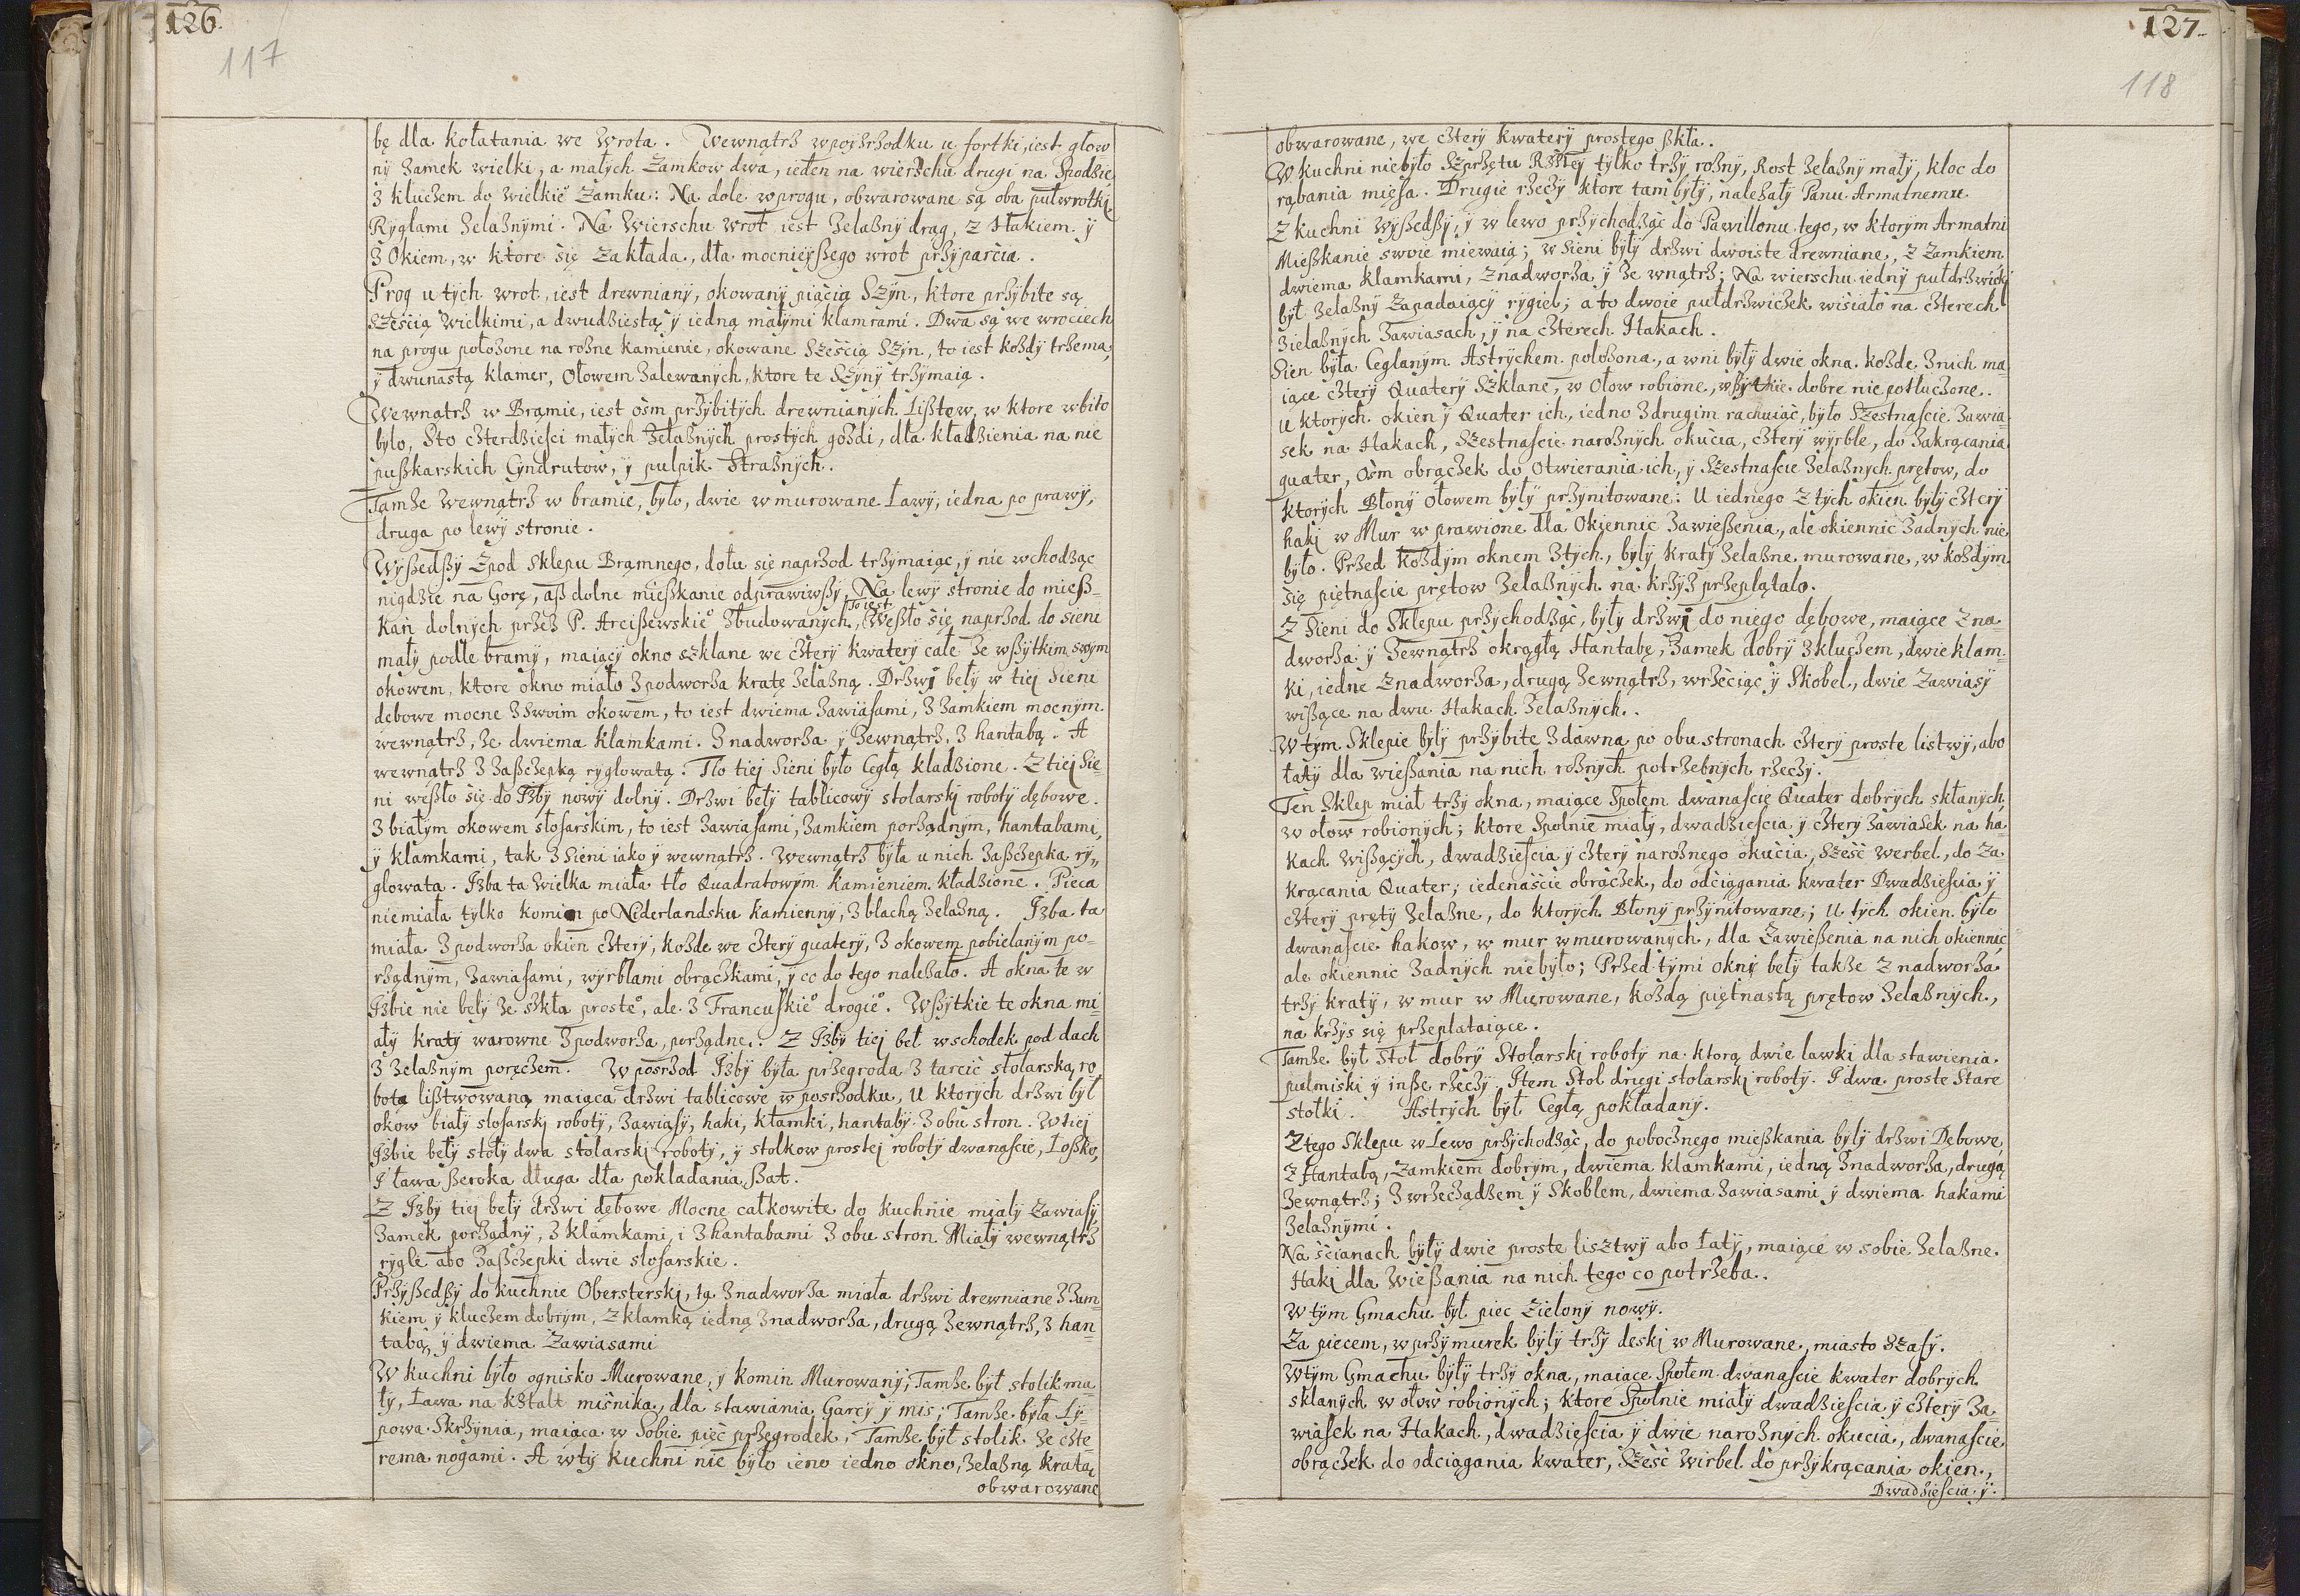 126.
117
bę dla kołatania we wrota. Wewnątrz wpoyśrzodku u fortki, iest głow
ny zamek wielki, a małych zamkow dwa, ieden na wierzchu drugi na spodzie,
z kluczem do wielkie° zamku: Na dole wprogu, obwarowane są oba pułwrotki
Ryglami żelaznymi. Na wierschu wrot iest żelazny drag, z Hakiem y
z Okiem, w ktore się zakłada, dla mocnieyßego wrot przyparcia.
Prog u tych wrot, iest drewniany, okowany piącią Szyn, ktore przybite są
szescią wielkimi, a dwudziestą y iedną małymi klamrami. Dwa są we wrociech
na progu położone na rożne kamienie, okowane Szescią Szyn, to iest kożdy trzema,
y dwunastą klamer, Ołowem zalewanych, ktore te Szyny trzymaią.
Wewnątrz w Bramie, iest ośm przybitych drewnianych Lißtew, w ktore wbito
było, Sto czterdziesci małych żelaznych prostych gożdi, dla kładzienia na nie
pußkarskich Cyndrutow, y pulpik Strażnych.
Tamże wewnątrz w bramie, było, dwie wmurowane Ławy, iedna po prawy,
druga po lewy stronie.
Wyßedßy zpod Sklepu Bramnego, dołu się naprzod trzymaiąc, y nie wchodząc
nigdzie na Gorę, aß dolne mießkanie odprawiwßy, Na lewy stronie do mieß-
To iest
kań dolnych przez P. Arcißewskie° zbudowanych, Weßło się naprzod do sieni
mały podle bramy, maiący okno szklane we cztery kwatery całe ze wßytkim swym
okowem, ktore okno miało zpodworza kratę żelazną. Drzwi beły w tiej Sieni
dębowe mocne z swoim okowem, to iest dwiema zawiasami, z zamkiem mocnym
wewnątrz, ze dwiema klamkami. z nadworza y zewnątrz, z hantabą. A
wewnątrz z zaßczepką ryglowatą. Tło tiej Sieni było Cegłą kładzione. Z tiej Sie-
ni weßło się do Izby nowy dolny. Drzwi beły tablicowy stolarskj roboty dębowe.
z białym okowem slosarskim, to iest zawiasami, zamkiem porządnym, hantabami,
y klamkami, tak z Sieni iako y wewnątrz. Wewnątrz była u nich zaßczepka ry„
glowata. Izba ta wielka miała tło Quadratowym kamieniem kładzione. Pieca
niemiała tylko komin po Niderlandsku kamienny, z blachą żelazną. Izba ta
miała z podworza okien cztery, kożde we cztery quatery, z okowem pobielanym po-
rządnym, zawiasami, wyrblami obrączkami, y co do tego należało. A okna te w
Izbie nie beły ze szkła proste°, ale z Francuskie° drogie°. Wßytkie te okna mi-
ały kraty warowne zpodworza, porządne. Z Izby tiej beł wschodek pod dach
z żelaznym poręczem. W posrzod Izby była przegroda z tarcic stolarską ro
botą lißtwowaną maiąca drzwi tablicowe w posrzodku, U ktorych drzwi był
okow biały slosarskj roboty, zawiasy, haki, klamki, hantaby z obu stron. W tiej
Izbie beły stoły dwa stolarskj roboty, y stolkow prostej roboty dwanascie, Łoßko,
I ława ßeroka długa dla pokladania ßat.
Z Izby tiej beły drzwi dębowe Mocne całkowite do kuchnie miały zawiasy,
zamek porządny, z klamkami, i z hantabami z obu stron. Miały wewnątrz
rygle abo zaßczepki dwie slosarskie.
Przyßedßy do kuchnie Obersterskj, ta z nadworza miała drzwi drewniane z zam-
kiem y kluczem dobrym, z klamką iedną znadworza, drugą zewnątrz, z han-
tabą, y dwiema zawiasami
W kuchni było ognisko Murowane, y komin Murowany, Tamże był stolik ma
ły, Ława na kßtałt misnika, dla stawiania Garcy y mis; Tamże była Ly-
powa Skrzynia, maiąca w Sobie pięć przegrodek, Tamże był stolik ze czte-
rema nogami. A w ty kuchni nie było ieno iedno okno, żelazną kratą
obwarowane
127.
118
obwarowane, we cztery kwatery prostego ßkła.
W kuchni niebyło Szprzętu Rßtey tylko trzy rożny, Rost żelazny mały, kloc do
rąbania mięsa. Drugie rzeczy ktore tam były, należały Panu Armatnemu.
Z kuchni wyßedßy, y w lewo przychodząc do Pawillonu tego, w ktorym Armatni
Mießkanie swoie miewaią; w sieni były drzwi dwoiste drewniane, z zamkiem
dwiema klamkami, z nadworza y ze wnątrz; Na wierschu iedny pułdrzwiczki
był żelazny zapadaiący rygiel; a to dwoie pułdrzwiczek wisiało na czterech
żielaznych zawiasach, y na czterech Hakach.
Sien była Ceglanym Astrychem położona, a wni były dwie okna. kożde z nich ma
iące cztery Quatery Szklane, w Ołow robione, wßytkie dobre nie potłuczone.
U ktorych okien y Quater ich, iedno z drugim rachuiąc, było Szesnascie zawia-
sek na Hakach, Szestnascie narożnych okucia, cztery wyrble, do zakrącania
quater, Ośm obrączek do Otwierania ich, y Szestnascie żelaznych prętow, do
ktorych Błony ołowem były przynitowane: U iednego z tych okien były cztery
hakj w Mur wprawione dla Okiennic zawießenia, ale okiennic żadnych nie
było. Przed kożdym oknem z tych, były kraty żelazne murowane, w kożdym
się piętnascie prętow żelaznych na krzyż przeplątało.
Z Sieni do Sklepu przychodząc, były drzwi do niego dębowe, maiące z na-
dworza y zewnątrz okrągłą Hantabę, zamek dobry z kluczem, dwie klam-
ki, iednę z nadworza, drugą zewnątrz, wrzeciąc y Skobel, dwie zawiasy
wißące na dwu Hakach żelaznych.
W tym Sklepie były przybite zdawna po obu stronach cztery proste listwy, abo
łaty dla wießania na nich rożnych potrzebnych rzeczy.
Ten Sklep miał trzy okna, maiące Społem dwanascie Quater dobrych skłanych,
w ołow robionych; ktore Społnie miały, dwadziescia y cztery zawiasek na ha-
kach wißących, dwadziescia y cztery narożnego okucia, Szesc werbel, do za-
krącania Quater; iedenascie obrączek, do odciągania kwater Dwadziescia y
cztery pręty żelazne, do ktorych Błony przynitowane; U tych okien było
dwanascie hakow, w mur wmurowanych, dla zawießenia na nich okiennic,
ale okiennic żadnych niebyło; Przed tymi okny beły także z nadworza
trzy kraty, w mur w Murowane, kożdą piętnastą prętow żelaznych,
na krzys się przeplataiące.
Tamże był Stoł dobry Stolarskj roboty na ktorą dwie lawki dla stawienia
pulmiski y inße rzeczy. Item Stol drugi stolarskj roboty. I dwa proste Stare
stołki. Astrych był Cegłą pokładany.
Z tego Sklepu w Lewo przychodząc, do pobocznego mießkania były drzwi Dębowe,
z Hantabą, zamkiem dobrym, dwiema klamkami, iedną z nadworza, drugą
zewnątrz; z wrzeciądzem y Skoblem, dwiema zawiasami y dwiema hakami
żelaznymi.
Na ścianach były dwie proste lisztwy abo Łaty, maiące w sobie żelazne.
Haki dla wießania na nich tego co potrzeba.
W tym Gmachu był piec zielony nowy.
Za piecem, w przymurek były trzy deskj w Murowane, miasto Szafy.
Wtym Gmachu były trzy okna, maiące Społem dwanascie kwater dobrych
sklanych w ołow robionych; ktore Społnie miały dwadziescia y cztery za-
wiasek na Hakach, dwadziescia y dwie narożnych okucia, dwanascie
obrączek do odciągania kwater, Szesc wirbel do przykrącania okien,
Dwadziescia y.